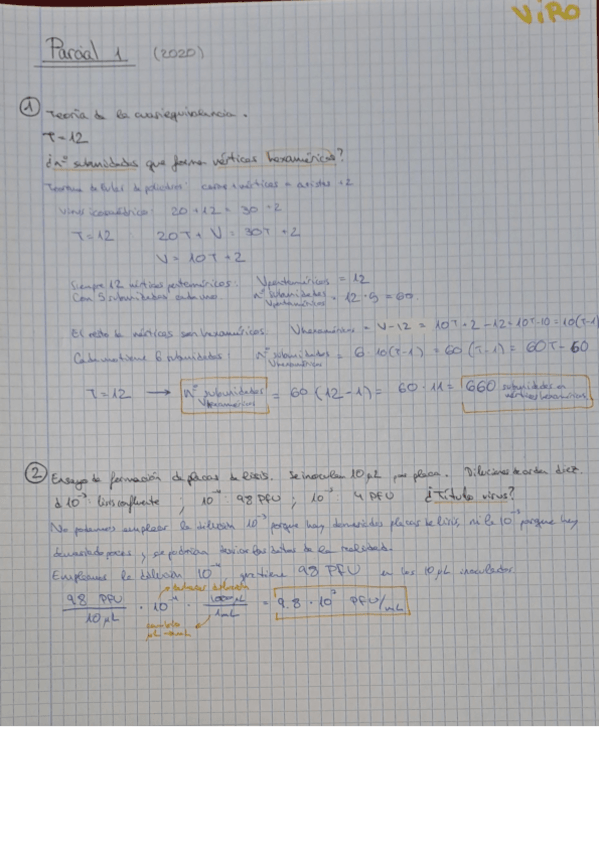 VIRO
Parcial 1 (2020)
① Teoría de la cuasiequivalencia.
T=12
¿nº subunidades que forman vértices hexaméricos?
Teorema de Euler de poliedros: caras + vértices = aristas +2
Virus icosaédrico: 20 + 12 = 30 +2
T=12 20T + V = 30T +2
V = 10T +2
Siempre 12 vértices pentaméricos: Vpentaméricos = 12
Con 5 subunidades cada uno. nº subunidades Vpentaméricos = 12 · 5 = 60.
El resto de vértices son hexaméricos. Vhexaméricos = V-12 = 10T +2 -12 = 10T-10 = 10(T-1)
Cada uno tiene 6 subunidades: nº subunidades Vhexaméricos = 6 · 10(T-1) = 60 (T-1) = 60T - 60
T=12 → nº subunidades Vhexaméricos = 60 (12-1) = 60·11 = 660 subunidades en vértices hexaméricos
② Ensayo de formación de placas de lisis. Se inoculan 10 µL por placa. Diluciones de orden diez.
10⁻³: lisis confluente ; 10⁻⁴: 98 PFU ; 10⁻⁵: 4 PFU ¿Título virus?
No podemos emplear la dilución 10⁻³ porque hay demasiadas placas de lisis, ni la 10⁻⁵ porque hay
demasiado pocas, y se podrían los datos de la realidad.
Empleamos la dilución 10⁻⁴ que tiene 98 PFU en los 10 µL inoculados.
98 PFU / 10 µL · 10⁴ · 1000µL / 1mL = 9.8 · 10⁷ PFU/mL
cambio µL → mL